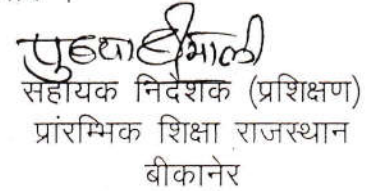 सहायक निदेशक (प्रशिक्षण)
प्रांरम्भिक शिक्षा राजस्थान
बीकानेर